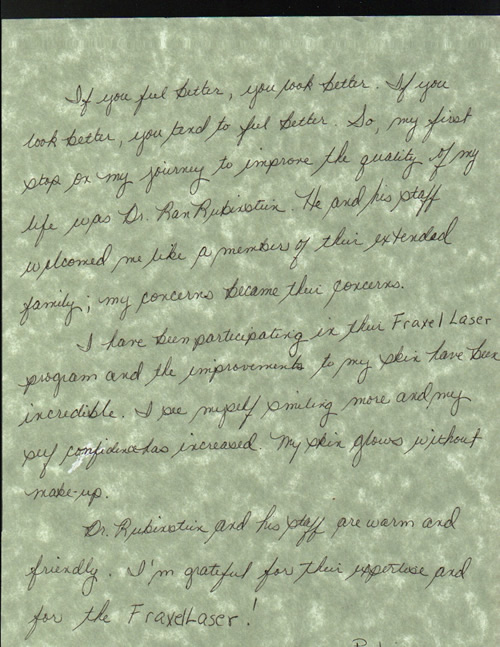 If you feel better, you look better. If you
look better, you tend to feel better. So, my first
stop on my journey to improve the quality of my
life was Dr. Ran Rubinstein. He and his staff
welcomed me like a member of their extended
family; my concerns became their concerns.
I have been participating in their Fraxel Laser
program and the improvements to my skin have been
incredible. I see myself smiling more and my
self confidence has increased. My skin glows without
make-up.
Dr. Rubinstein and his staff are warm and
friendly. I'm grateful for their expertise and
for the Fraxel Laser!